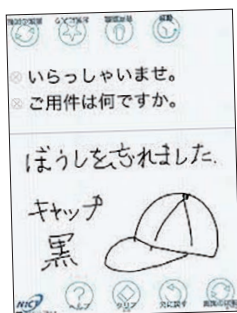 いらっしゃいませ。
ご用件は何ですか。
ぼうしを忘れました.
キャップ
黒
NICT
ヘルプ
クリア
元に戻す